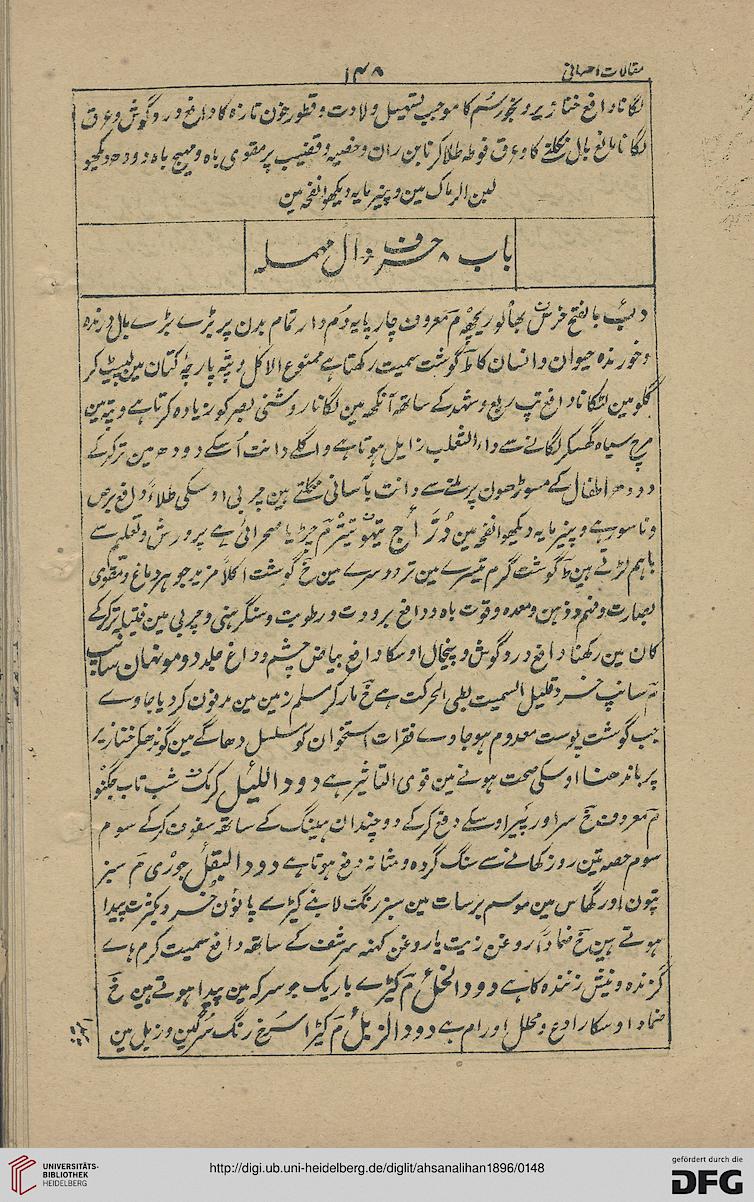 مقالات احسانی
۱۴۸
لگانا دافع خنازیر و بخور سُم کا موجب تسہیل ولادت و قطور خون تازہ کا دافع درد گوش و عرق
لگانا مانع بال نکلنے کا و عرق فوطہ طلا کرنا بن ران و خصیہ و قضیب پر مقوی باہ و مہیج باہ دودھ دیکھو
لبن الرماک مین و پنیر مایہ دیکھو انفحہ مین
باب ۸ حرف دال مہملہ
دب بالفتح خرس بھالو ریچھ م معروف چارپایہ دُم دار تمام بدن پر بڑے بڑے بال درندہ
و خورندہ حیوان و انسان کا گوشت سمیت رکھتا ہے ممنوع الاکل و پتہ پارچہ کتان مین لپیٹ کر
گلو مین لٹکانا دافع تپ ربع و شہد کے ساتھ آنکھ مین لگانا روشنی بصر کو زیادہ کرتا ہے و پتہ مین
مرچ سیاہ گھسکر لگانے سے داء الثعلب زایل ہوتا ہے و اگلے دانت اُسکے دودھ مین تر کرکے
دودھ اطفال کے مسوڑھون پر ملنے سے دانت بآسانی نکلتے ہین چربی اوسکی طلاءً دافع برص
و ناسور ہے و پنیر مایہ دیکھو انفحہ مین دُرّاج تیہو تیتر م چڑیا صحرائی ہے پرورش و تعلیم سے
باہم لڑتے ہین گوشت گرم تیسرے مین تر دوسرے مین خ گوشت اکلاً مزید جوہر دماغ و مقوی
بصارت و فہم و ذہن و معدہ و قوت باہ و دافع برودت و رطوبت و سنگرہنی و چربی مین فتیلہ تر کرکے
کان مین رکھنا دافع درد گوش و پیخال اوسکا دافع بیاض چشم و داغ جلد دومونہان سانپ
سانپ خرد قلیل السمیت بطی الحرکت ہے خ مار کر مسلم زمین مین مدفون کر دیا جاوے
جب گوشت پوست معدوم ہو جاوے فقرات استخوان کو مسلسل دھاگے مین گوندھکر خنازیر
پر باندھنا اوسکی صحت ہونے مین قوی التاثیر ہے دود اللیل کرمک شب تاب جگنو
م معروف خ سر اور پیر اوسکے دفع کرکے دوچندان ہینگ کے ساتھ سفوف کرکے سوم
سوم حصہ تین روز کھانے سے سنگ گردہ و مثانہ دفع ہوتا ہے دود البقل جوڑی م سبز
پتون اور گھاس مین موسم برسات مین سبز رنگ لانبے کیڑے پانون خرد و بکثرت پیدا
ہوتے ہین خ ضماداً روغن زیت یا روغن کہنہ سرشف کے ساتھ دافع سمیت کرم ہاے
گزندہ و نیش زنندہ کا ہے دود الخل م کیڑے باریک جو سرکہ مین پیدا ہوتے ہین خ
ضماد اوسکا رادع و محلل اورام ہے دود الزبل م کیڑا سرخ رنگ سرگین و زبل مین
UNIVERSITÄTS-
BIBLIOTHEK
HEIDELBERG
http://digi.ub.uni-heidelberg.de/diglit/ahsanalihan1896/0148
gefördert durch die
DFG